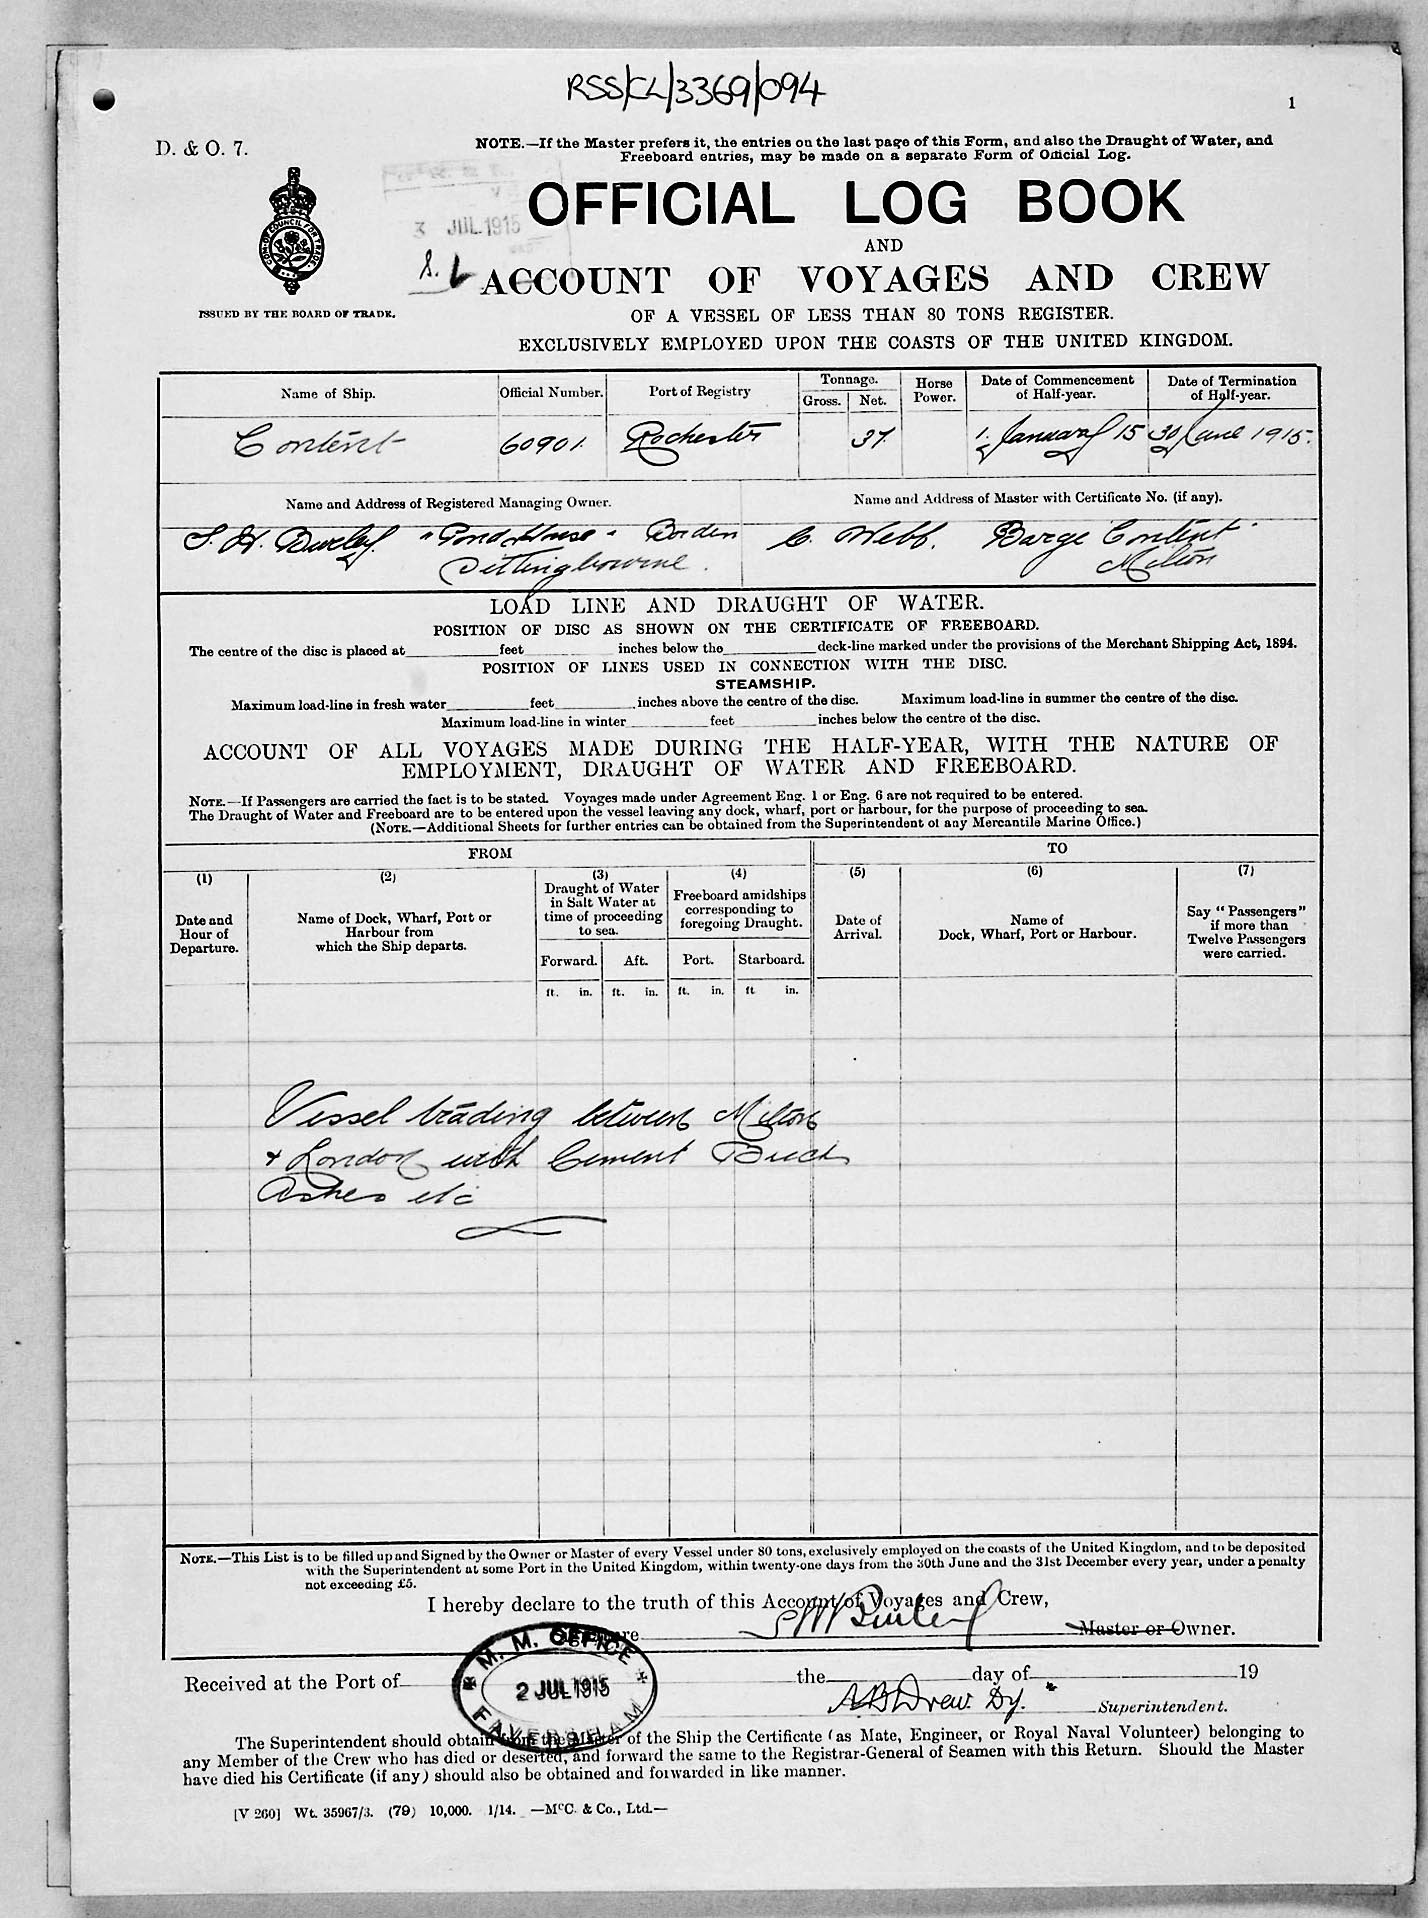 RSS/CL/3369/094
1
D. & O. 7.
NOTE.—If the Master prefers it, the entries on the last page of this Form, and also the Draught of Water, and
Freeboard entries, may be made on a separate Form of Official Log.
3 JUL 1915
OFFICIAL LOG BOOK
AND
ACCOUNT OF VOYAGES AND CREW
ISSUED BY THE BOARD OF TRADE.
OF A VESSEL OF LESS THAN 80 TONS REGISTER.
EXCLUSIVELY EMPLOYED UPON THE COASTS OF THE UNITED KINGDOM.
Name of Ship. Official Number. Port of Registry Tonnage. Gross. Net. Horse Power. Date of Commencement of Half-year. Date of Termination of Half-year.
Content 60901 Rochester 37 1 January 15 30 June 1915.
Name and Address of Registered Managing Owner. Name and Address of Master with Certificate No. (if any).
S. H. Burley. "Pond House" Borden C. Webb. Barge Content
Sittingbourne. Milton
LOAD LINE AND DRAUGHT OF WATER.
POSITION OF DISC AS SHOWN ON THE CERTIFICATE OF FREEBOARD.
The centre of the disc is placed at feet inches below the deck-line marked under the provisions of the Merchant Shipping Act, 1894.
POSITION OF LINES USED IN CONNECTION WITH THE DISC.
STEAMSHIP.
Maximum load-line in fresh water feet inches above the centre of the disc. Maximum load-line in summer the centre of the disc.
Maximum load-line in winter feet inches below the centre of the disc.
ACCOUNT OF ALL VOYAGES MADE DURING THE HALF-YEAR, WITH THE NATURE OF
EMPLOYMENT, DRAUGHT OF WATER AND FREEBOARD.
NOTE.—If Passengers are carried the fact is to be stated. Voyages made under Agreement Eng. 1 or Eng. 6 are not required to be entered.
The Draught of Water and Freeboard are to be entered upon the vessel leaving any dock, wharf, port or harbour, for the purpose of proceeding to sea.
(NOTE.—Additional Sheets for further entries can be obtained from the Superintendent of any Mercantile Marine Office.)
FROM TO
(1) (2) (3) (4) (5) (6) (7)
Date and Hour of Departure.
Name of Dock, Wharf, Port or Harbour from which the Ship departs.
Draught of Water in Salt Water at time of proceeding to sea.
Freeboard amidships corresponding to foregoing Draught.
Date of Arrival.
Name of Dock, Wharf, Port or Harbour.
Say "Passengers" if more than Twelve Passengers were carried.
Forward. Aft. Port. Starboard.
ft. in. ft. in. ft. in. ft in.
Vessel trading between Milton
& London with Cement Bricks
Ashes etc
NOTE.—This List is to be filled up and Signed by the Owner or Master of every Vessel under 80 tons, exclusively employed on the coasts of the United Kingdom, and to be deposited
with the Superintendent at some Port in the United Kingdom, within twenty-one days from the 30th June and the 31st December every year, under a penalty
not exceeding £5.
I hereby declare to the truth of this Account of Voyages and Crew,
S H Burley Master or Owner.
M. M. OFFICE
2 JUL 1915
FAVERSHAM
Received at the Port of the day of 19
A B Drew. Dy. Superintendent.
The Superintendent should obtain from the Master of the Ship the Certificate (as Mate, Engineer, or Royal Naval Volunteer) belonging to
any Member of the Crew who has died or deserted, and forward the same to the Registrar-General of Seamen with this Return. Should the Master
have died his Certificate (if any) should also be obtained and forwarded in like manner.
[V 260] Wt. 35967/3. (79) 10,000. 1/14. —McC. & Co., Ltd.—